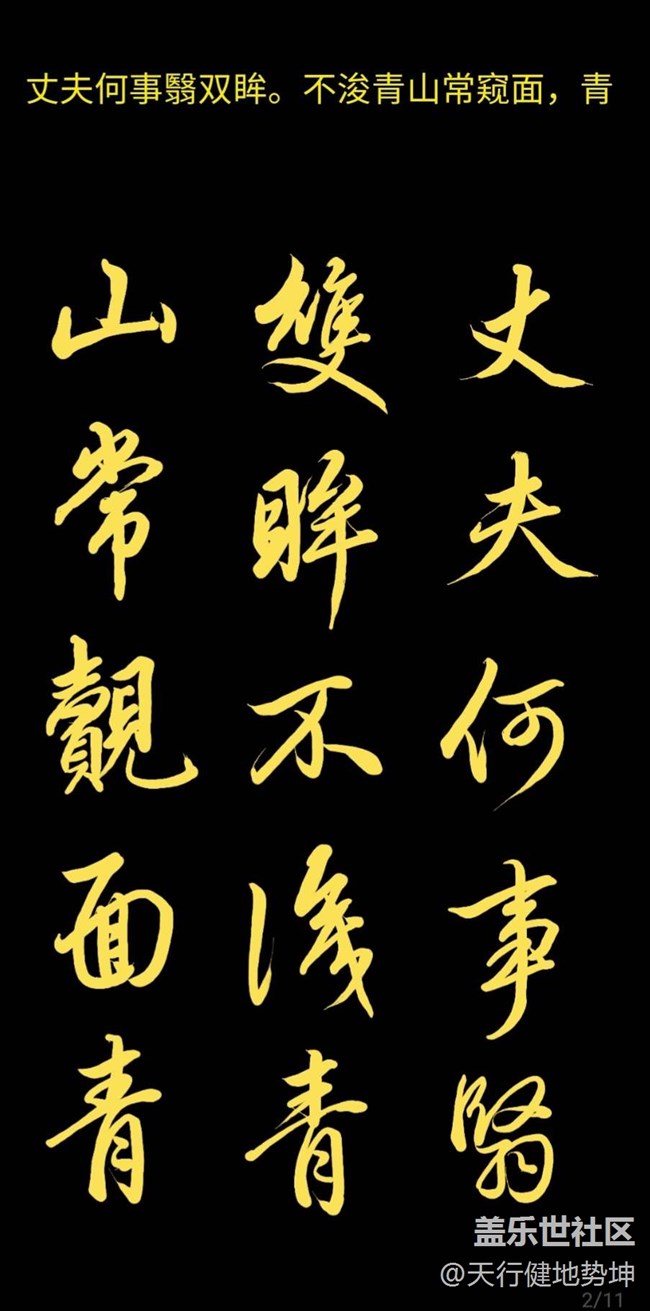 丈夫何事翳双眸。不浚青山常窥面，青
丈夫何事翳
雙眸不浚青
山常覿面青
盖乐世社区
@天行健地势坤
2/11